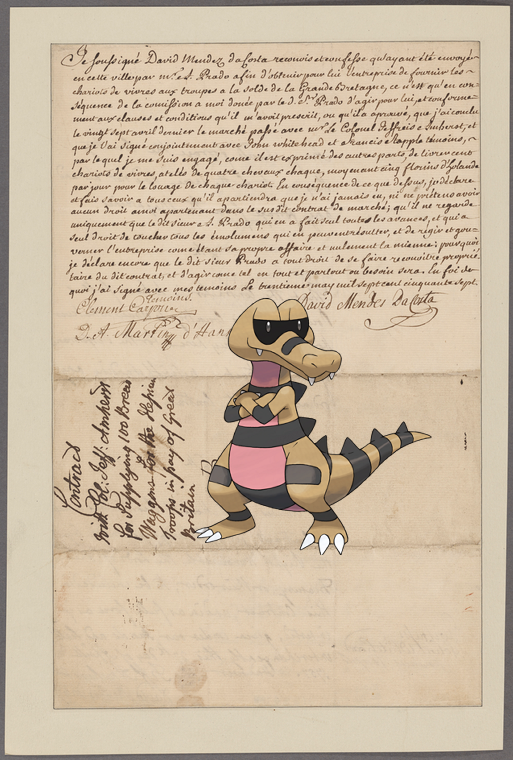 Je soussigné David Mendez daCosta reconois et confesse qu'ayant été envoyér
en cette ville par mr. A. Prado afin d'obtenir pour lui l'entreprise de fournir les
chariots de vivres aux troupes a la solde de la Grande bretagne, ce n'est qu'en con=
séquence de la comission a moi donée par le d. Sr. Prado d'agir pour lui, et conforme
ment aux clauses et conditions qu'il m'avoit prescrit, ou qu'il a aprouvé, que j'ai conclu
le vingt sept avril dernier le marché passé avec mr. le Colonel Jeffreis Amherst, et
que je l'ai signé conjointement avec John Whitehead et Francis temoins,
par lequel je me suis engagé, come il est exprimé des autres parts, de livrer cent
chariots de vivres, atelés de quatre chevaux chaque, moyenant cinq florins d'holande
par jour pour le louage de chaque chariot. En conséquence de ce que dessus, je déclare
et fais savoir a tous ceux qu'il apartiendra que je n'ai jamais eu, ni ne prétens avoir
aucun droit a moi apartenant dans le susdit contrat de marché; qu'il ne regarde
uniquement que le dit sieur A. Prado qui en a fait seul toutes les avances, et qui a
seul droit de toucher tous les émolumens qui en peuvent résulter, et de régir et gou=
verner l'entreprise come étant sa propre affaire et nulement la miene: pourquoi
je déclare encore que le dit sieur Prado a tout droit de se faire reconoitre proprié=
taire du dit contrat, et d'agir come tel en tout et partout ou besoin sera. En foi de
quoi j'ai signé avec mes temoins le trentieme may mil sept cent cinquante sept.
Temoins.
Clement
David Mendes DaCosta
D. A. Martin d'
Contract
with Col. Jeff: Amherst
for Supplying 100 Bread
Waggons for the
Troops in pay of Great
Britain